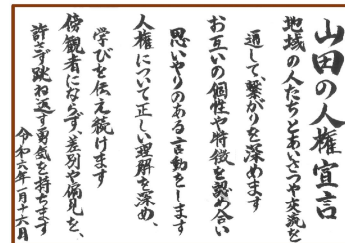 山田の人権宣言
地域の人たちとあいさつや交流を
通して、繋がりを深めます
お互いの個性や特徴を認め合い
思いやりのある言動をします
人権について正しい理解を深め、
学びを伝え続けます
傍観者にならず、差別や偏見を、
許さず跳ね返す勇気を持ちます
令和六年一月十六日